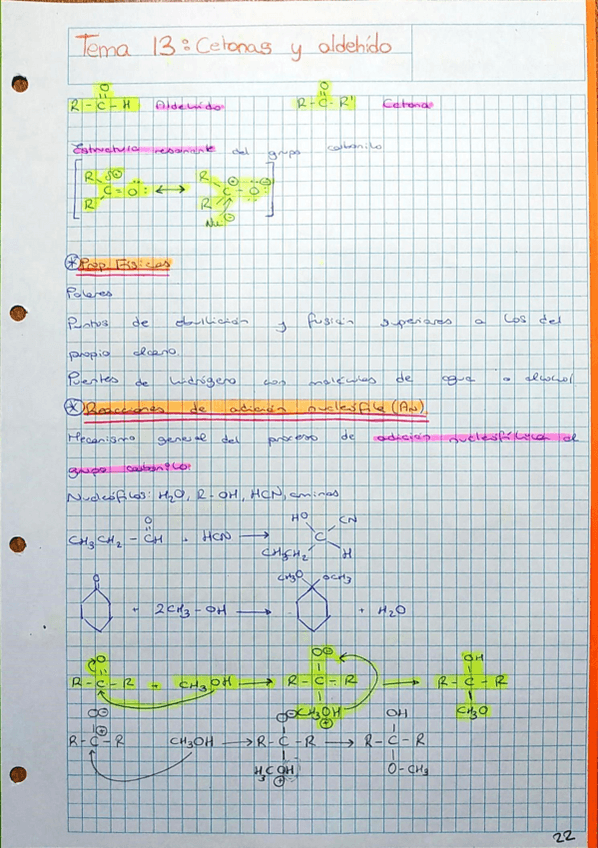 Tema 13: Cetonas y aldehído
R - C - H Aldehído R - C - R' Cetona
O O
Estructura resonante del grupo carbonilo
R R
C = O: ↔ C - O
R R
Nu⊖
* Prop. Físicas
Polares
Puntos de ebullición y fusión superiores a los del
propio alcano.
Puentes de hidrógeno con moléculas de agua o alcohol
* Reacciones de adición nucleófila (AN)
Mecanismo general del proceso de adición nucleofílica al
grupo carbonilo
Nucleófilos: H2O, R-OH, HCN, aminas
O HO CN
CH3CH2 - CH + HCN → C
CH3CH2 H
O CH3O OCH3
+ 2CH3-OH → + H2O
O O⊖ OH
R - C - R + CH3OH → R - C - R → R - C - R
CH3OH CH3O
⊕
O⊖ O⊖ OH
R - C - R CH3OH → R - C - R → R - C - R
⊕
H3COH O-CH3
⊕
22